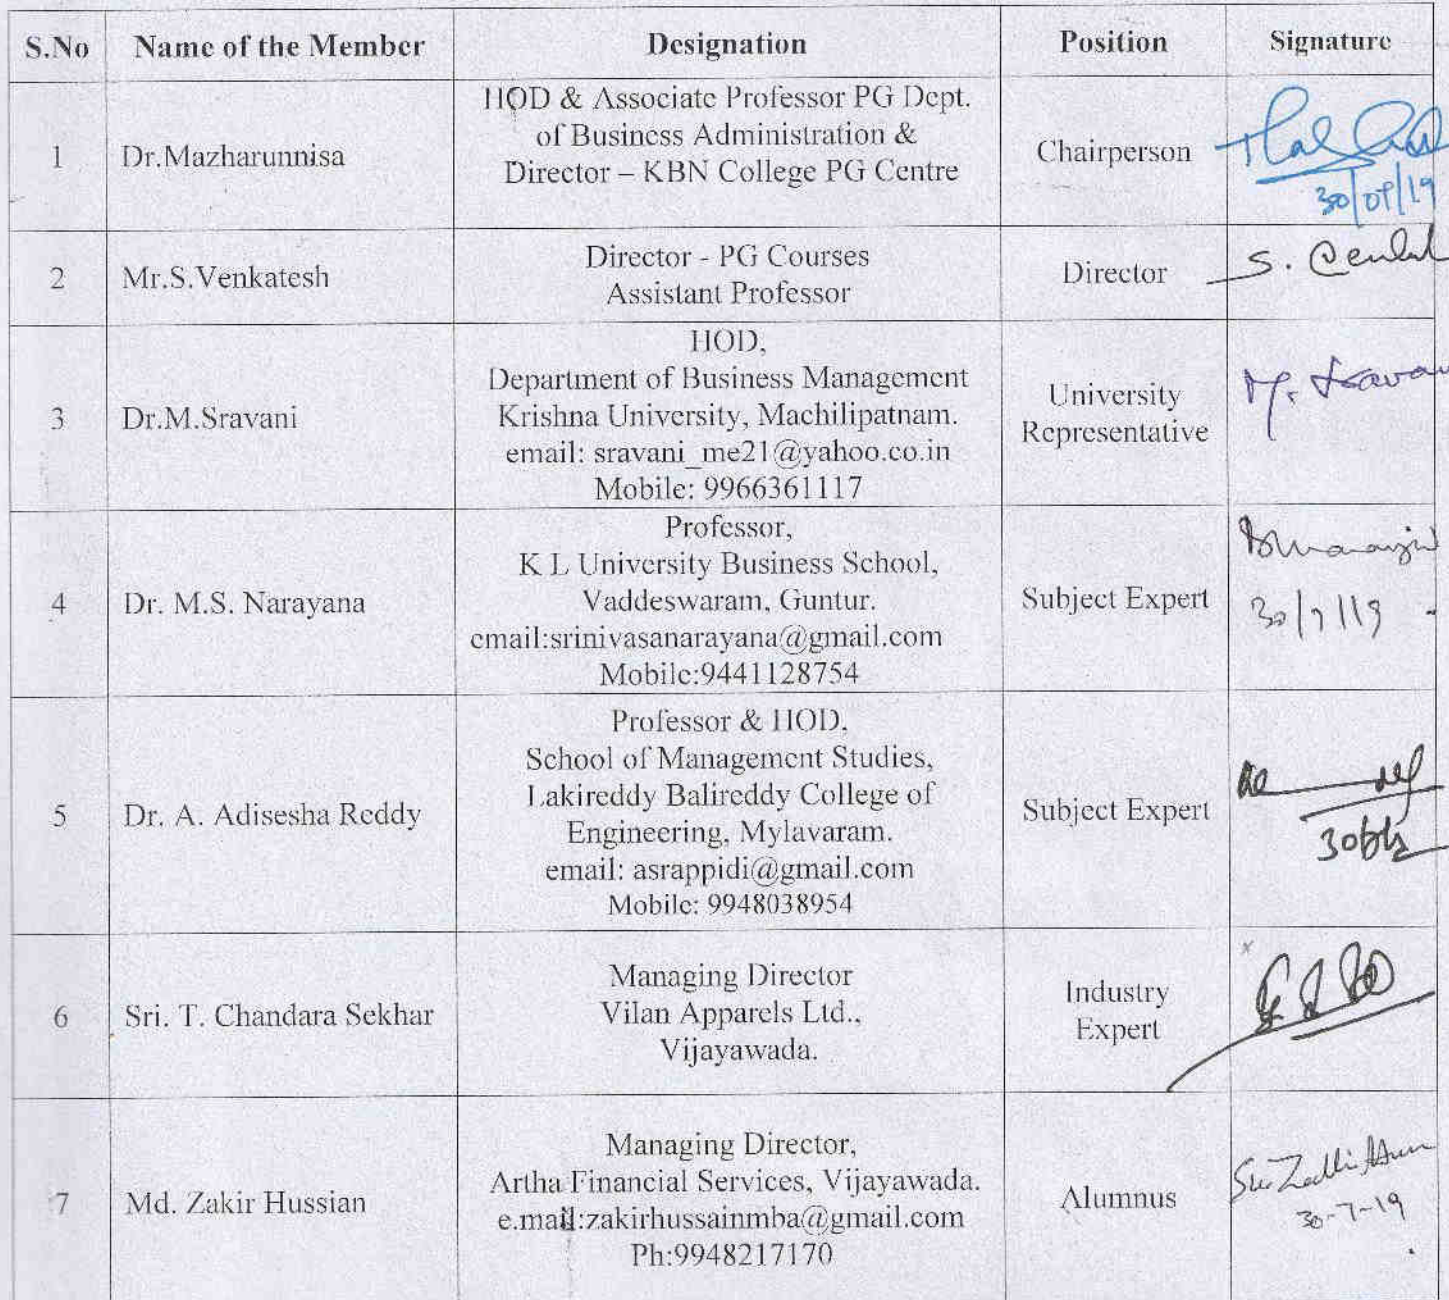 S.No Name of the Member Designation Position Signature
1 Dr.Mazharunnisa HOD & Associate Professor PG Dept.
of Business Administration &
Director – KBN College PG Centre Chairperson
30/07/19
2 Mr.S.Venkatesh Director - PG Courses
Assistant Professor Director S.
3 Dr.M.Sravani HOD,
Department of Business Management
Krishna University, Machilipatnam.
email: sravani_me21@yahoo.co.in
Mobile: 9966361117
University
Representative
4 Dr. M.S. Narayana Professor,
K L University Business School,
Vaddeswaram, Guntur.
email:srinivasanarayana@gmail.com
Mobile:9441128754
Subject Expert
30/7/19
5 Dr. A. Adisesha Reddy Professor & HOD,
School of Management Studies,
Lakireddy Balireddy College of
Engineering, Mylavaram.
email: asrappidi@gmail.com
Mobile: 9948038954
Subject Expert
6 Sri. T. Chandara Sekhar Managing Director
Vilan Apparels Ltd.,
Vijayawada.
Industry
Expert
7 Md. Zakir Hussian Managing Director,
Artha Financial Services, Vijayawada.
e.mail:zakirhussainmba@gmail.com
Ph:9948217170
Alumnus
30-7-19